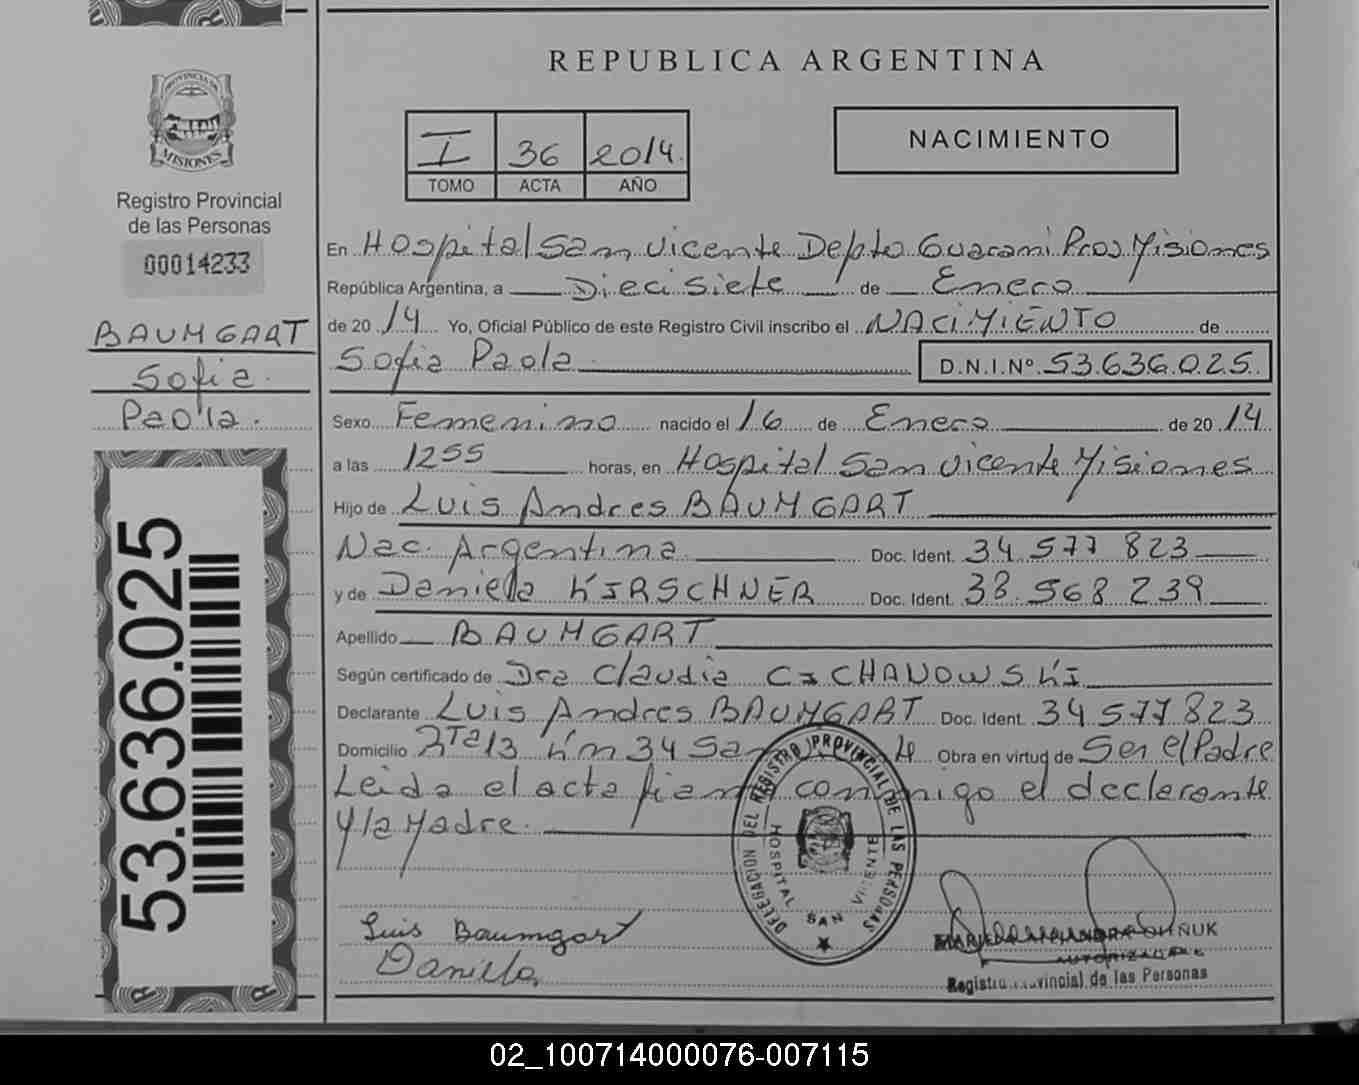 REPUBLICA ARGENTINA
PROVINCIA DE
MISIONES
Registro Provincial
de las Personas
00014233
BAUMGART
Sofia
Paola.
53.636.025
I 36 2014
TOMO ACTA AÑO
NACIMIENTO
En Hospital San Vicente Depto Guarani Prov Misiones
República Argentina, a Diecisiete de Enero
de 2014 Yo, Oficial Público de este Registro Civil inscribo el NACIMIENTO de
Sofia Paola D.N.I.Nº 53.636.025
Sexo Femenino nacido el 16 de Enero de 2014
a las 1255 horas, en Hospital San Vicente Misiones
Hijo de Luis Andres BAUMGART
Nac. Argentina Doc. Ident. 34.577 823
y de Daniela KIRSCHNER Doc. Ident. 38.568 239
Apellido BAUMGART
Según certificado de Dra Claudia CICHANOWSKI
Declarante Luis Andres BAUMGART Doc. Ident. 34577823
Domicilio Rta 13 Km 34 San Obra en virtud de Ser el Padre
Leida el acta firma conmigo el declarante
y la Madre.
DELEGACION DEL REGISTRO PROVINCIAL DE LAS PERSONAS
HOSPITAL SAN VICENTE
Luis Baumgart
Daniela
AUTORIZADA
Registro Provincial de las Personas
02_100714000076-007115